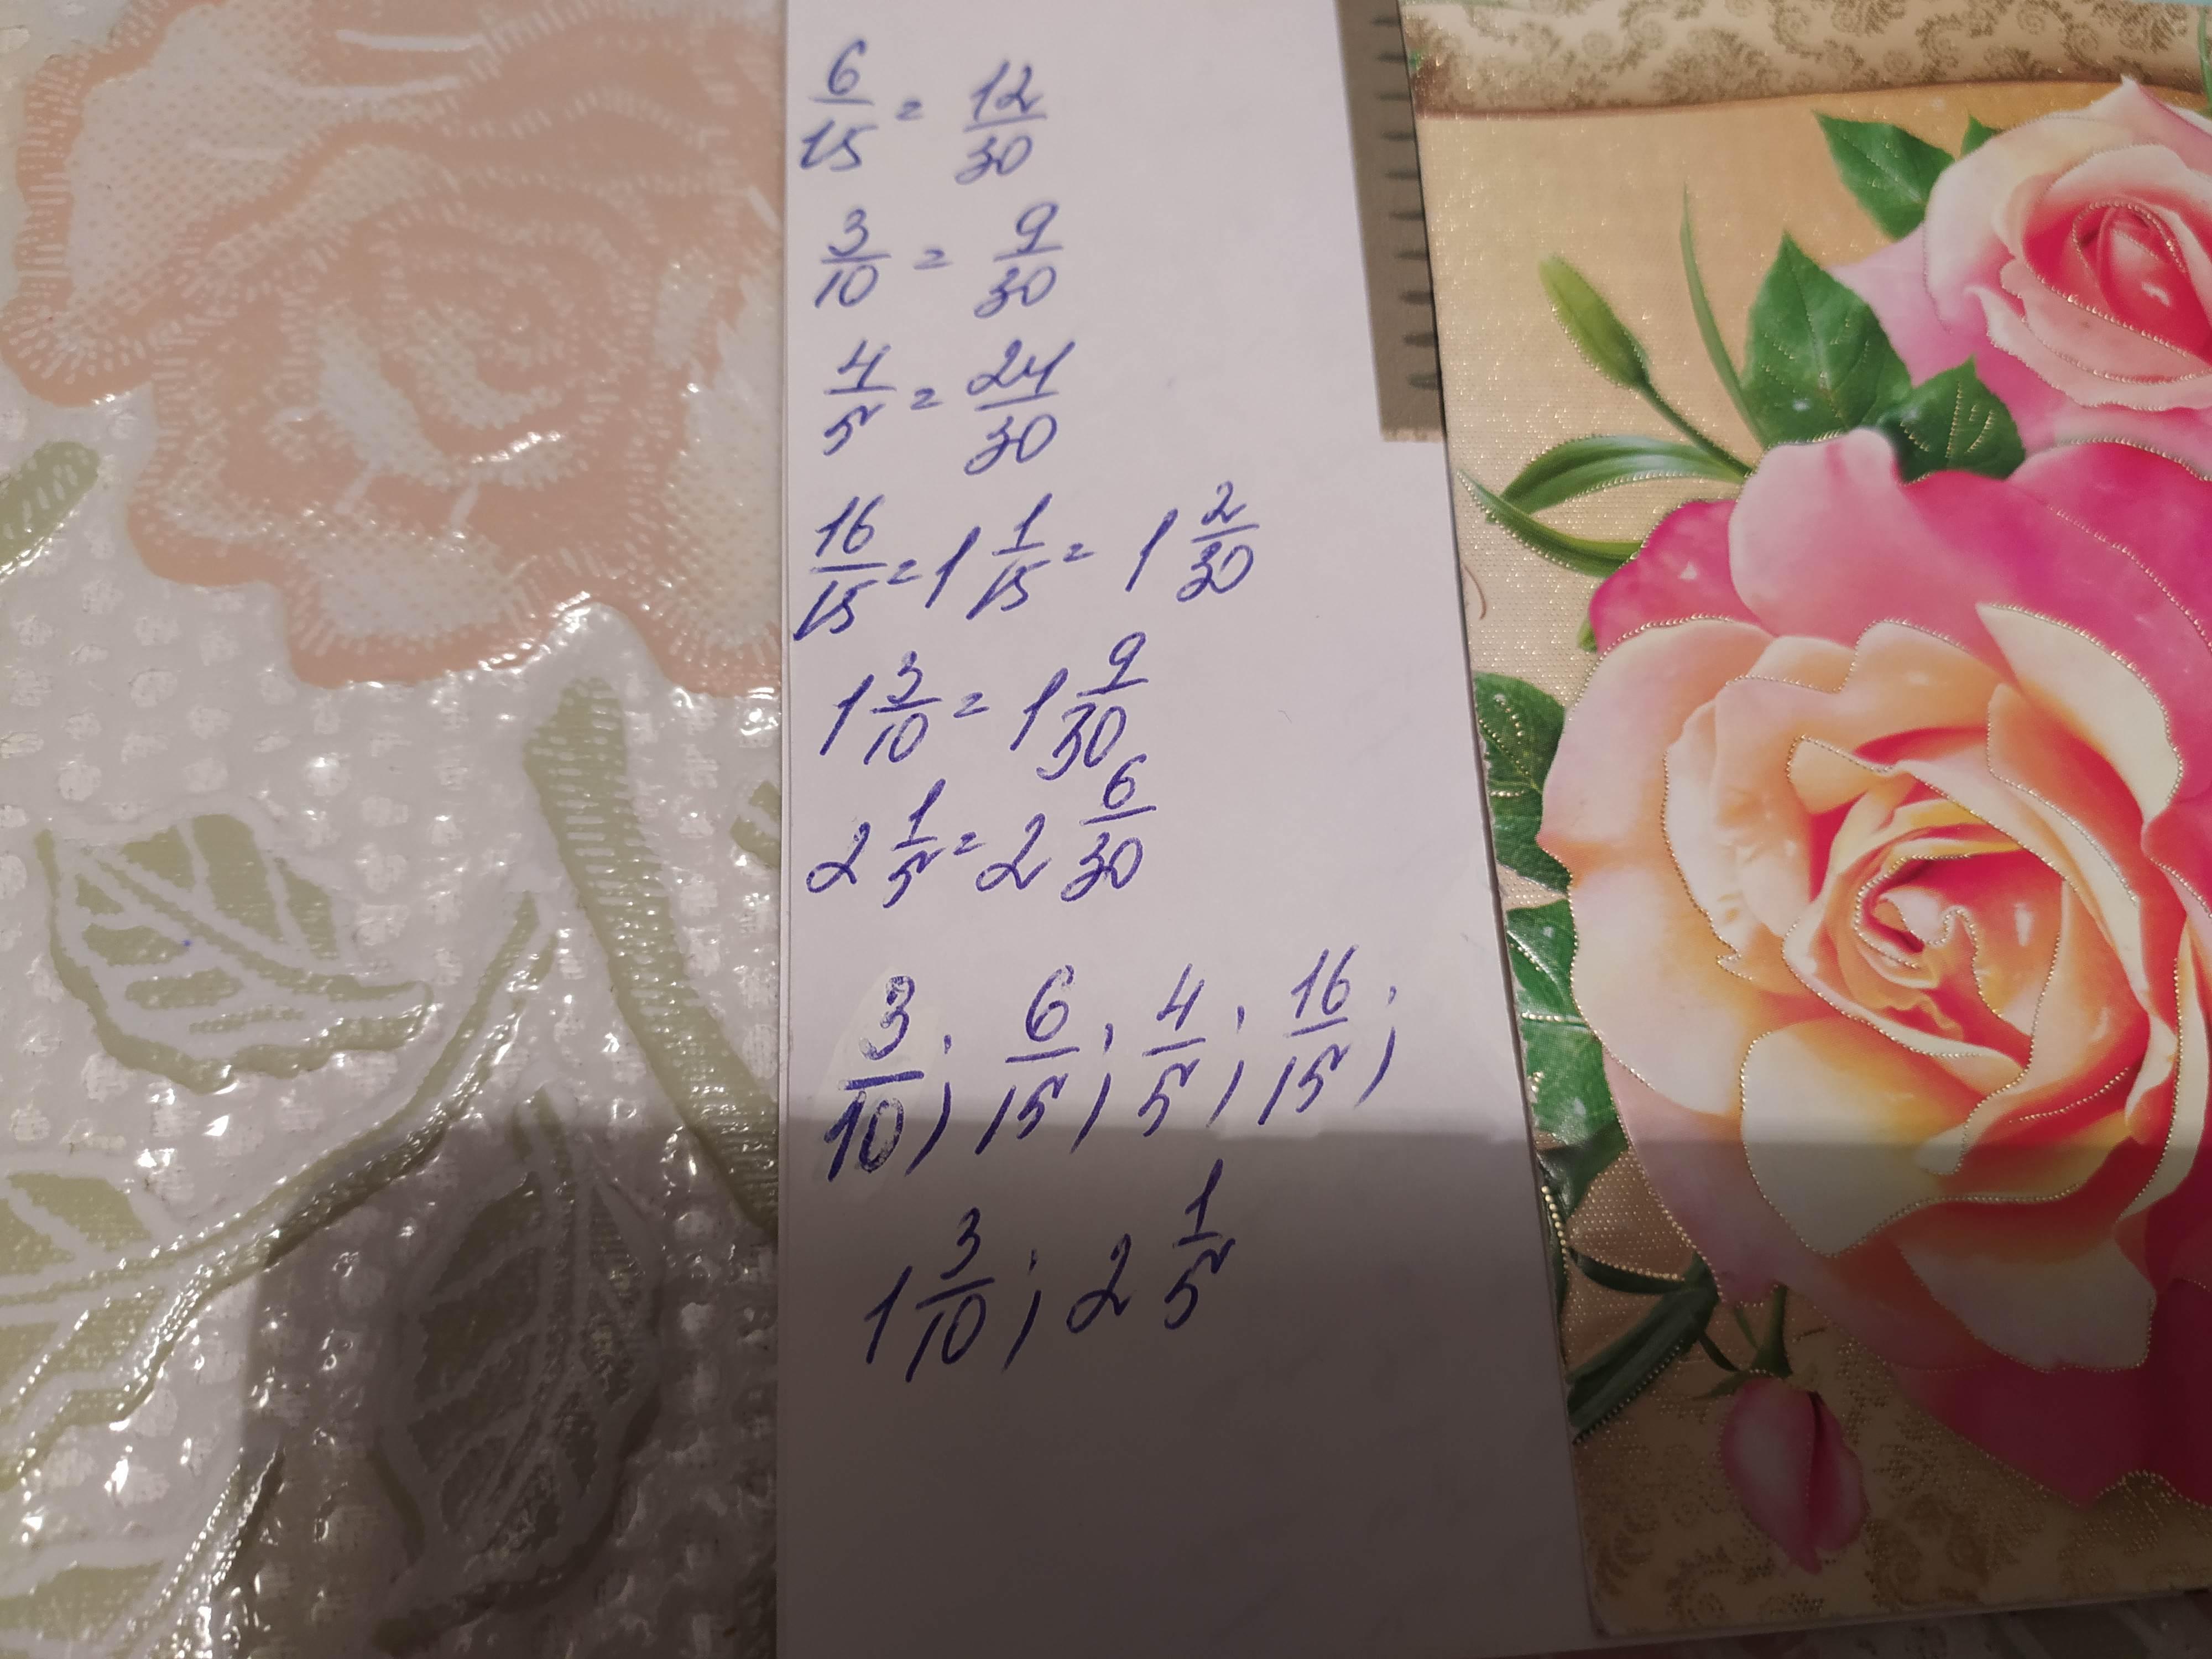 6/15 = 12/30
3/10 = 9/30
4/5 = 24/30
16/15 = 1 1/15 = 1 2/30
1 3/10 = 1 9/30
2 1/5 = 2 6/30
3/10; 6/15; 4/5; 16/15;
1 3/10; 2 1/5